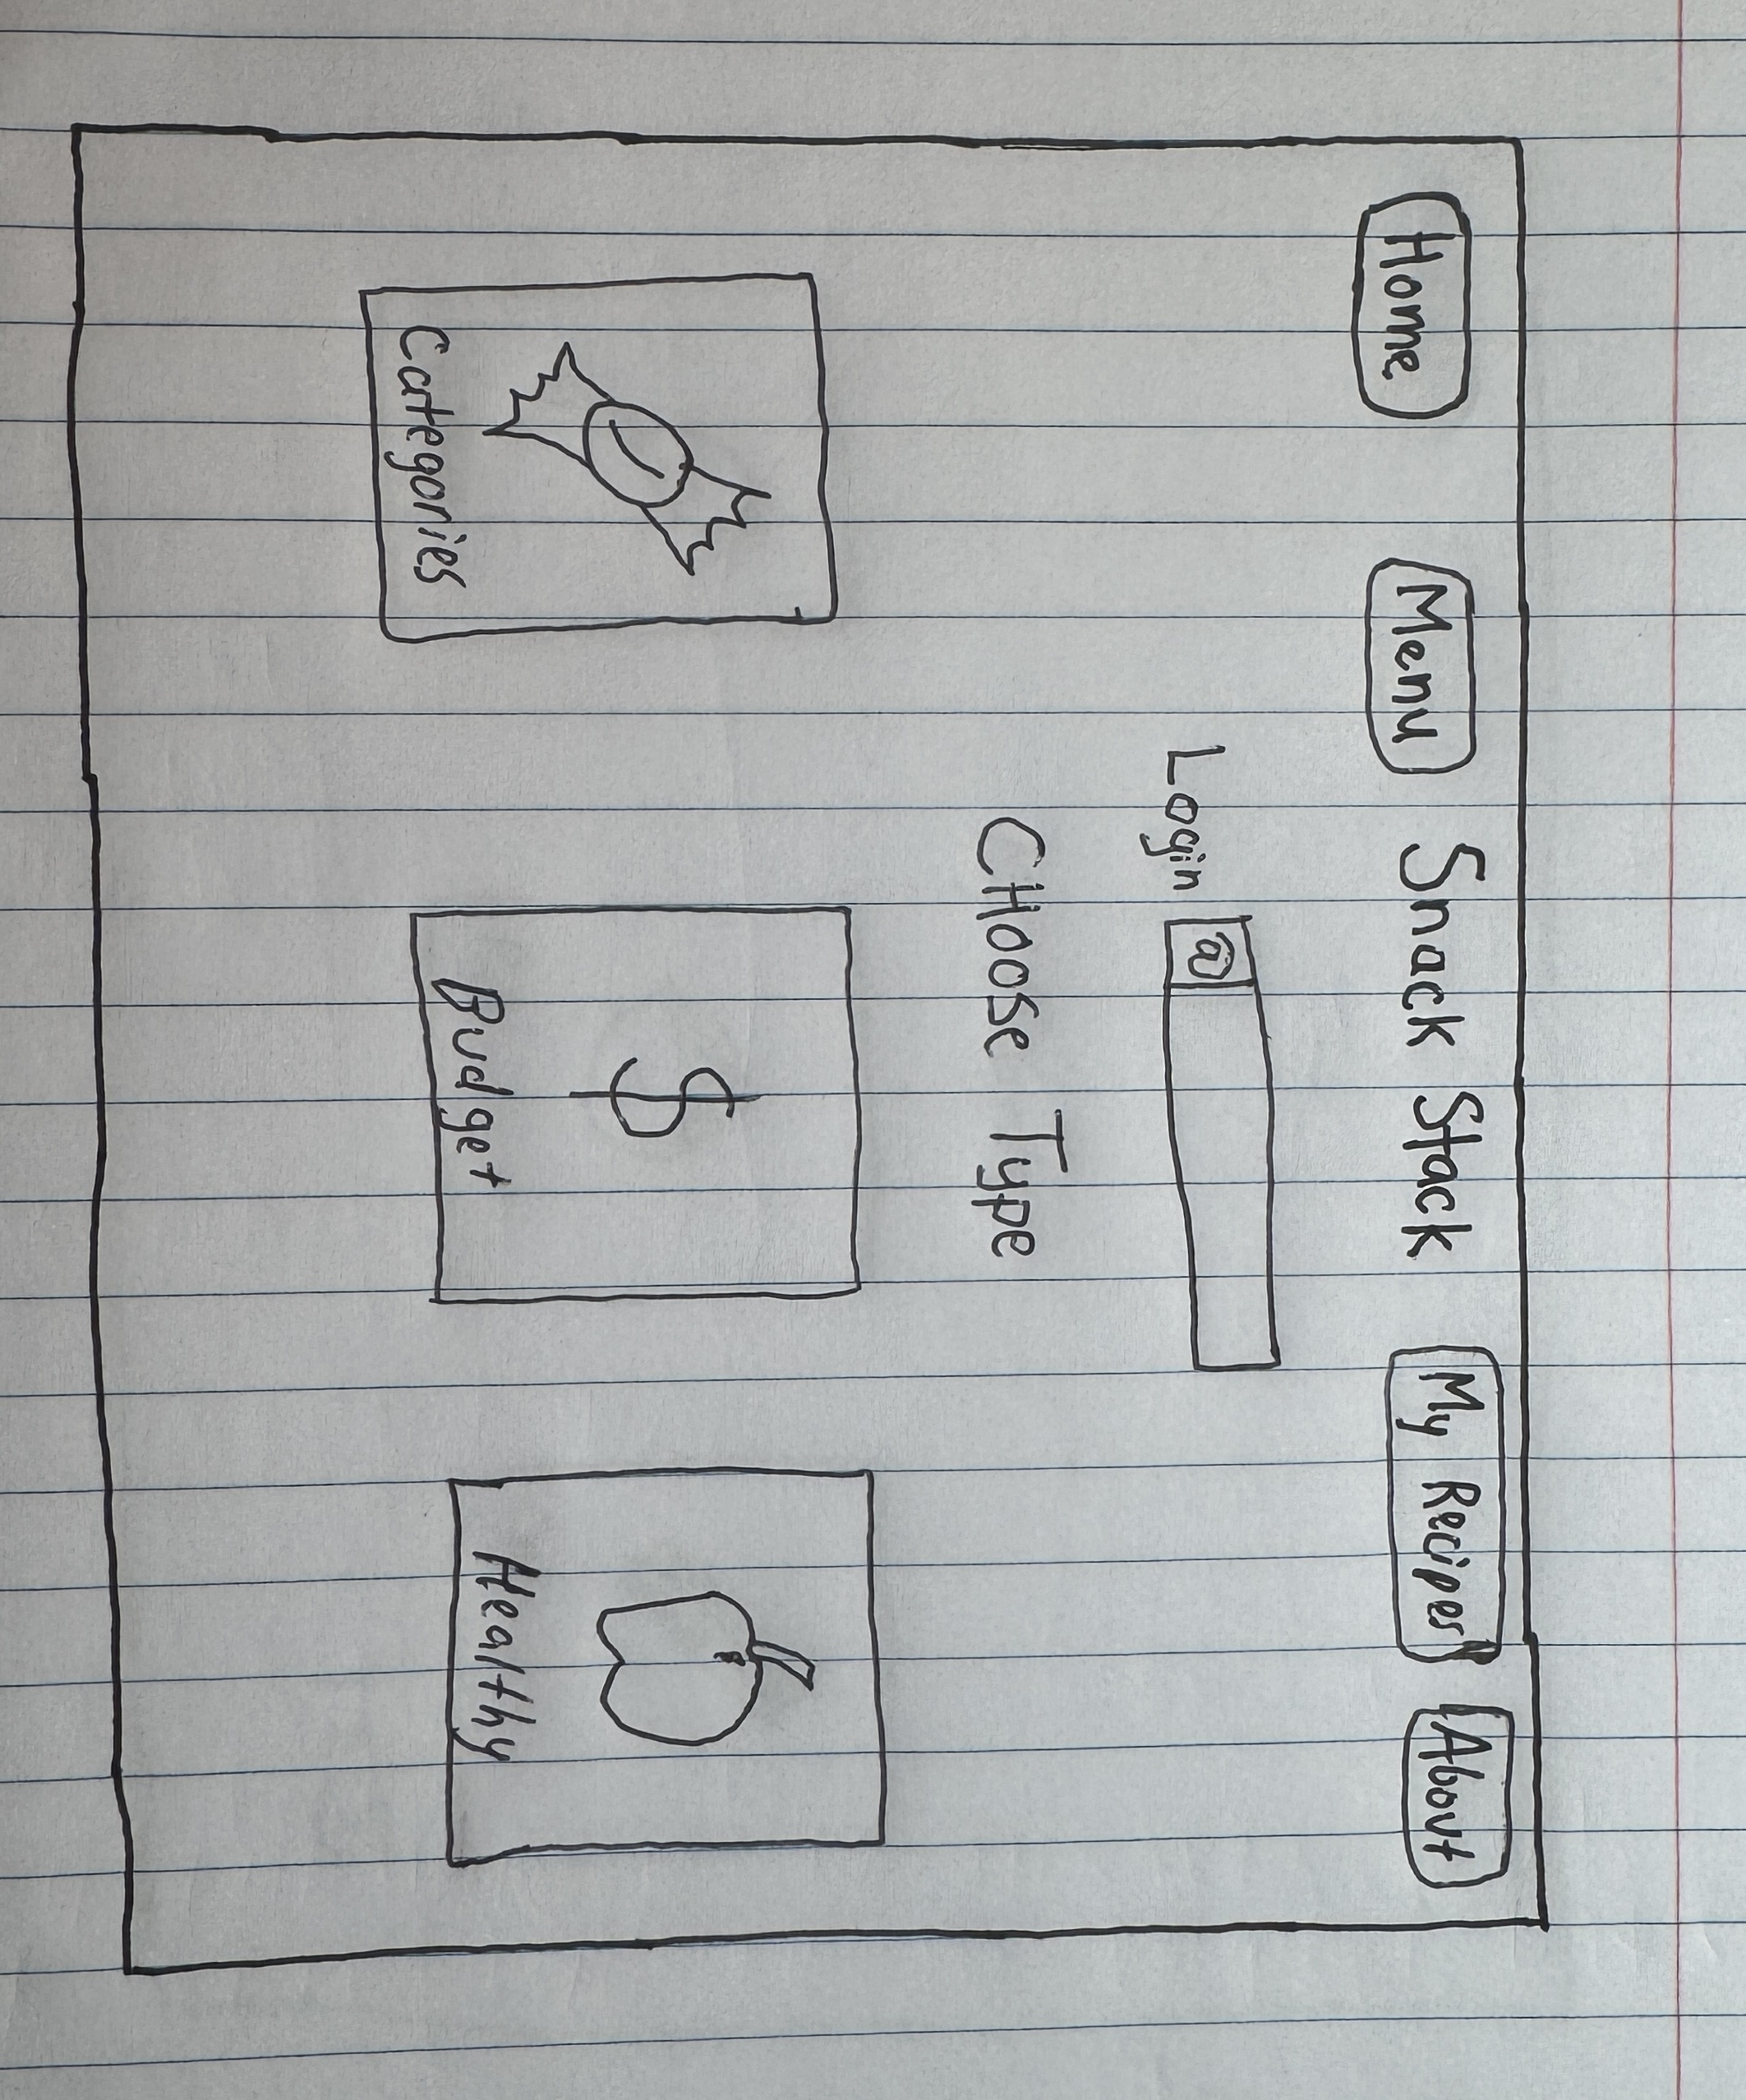 Home Menu Snack Stack My Recipes About
Login @
CHoose Type
$
Categories Budget Healthy